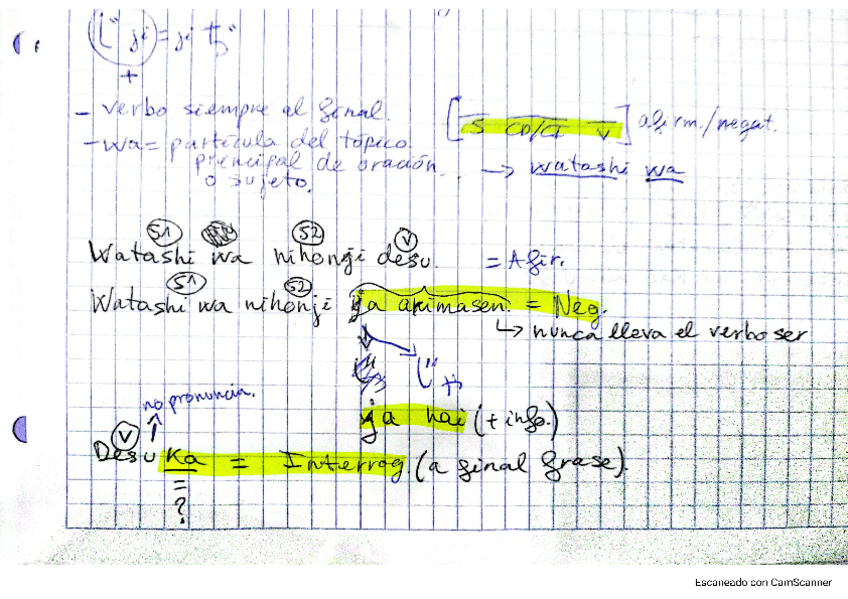 じ ji = ji ぢ
+
- verbo siempre al final.
[S CD/CI V] afirm./negat.
- wa = partícula del tópico
principal de oración
o sujeto.
→ watashi wa
S1 S2 V
Watashi wa nihonji desu. = Afir.
S1 S2
Watashi wa nihonji ja arimasen. = Neg.
↳ nunca lleva el verbo ser
じゃ
no pronuncia.
ja nai (+ info.)
V
Desu ka = Interrog (a final frase).
=
?
Escaneado con CamScanner